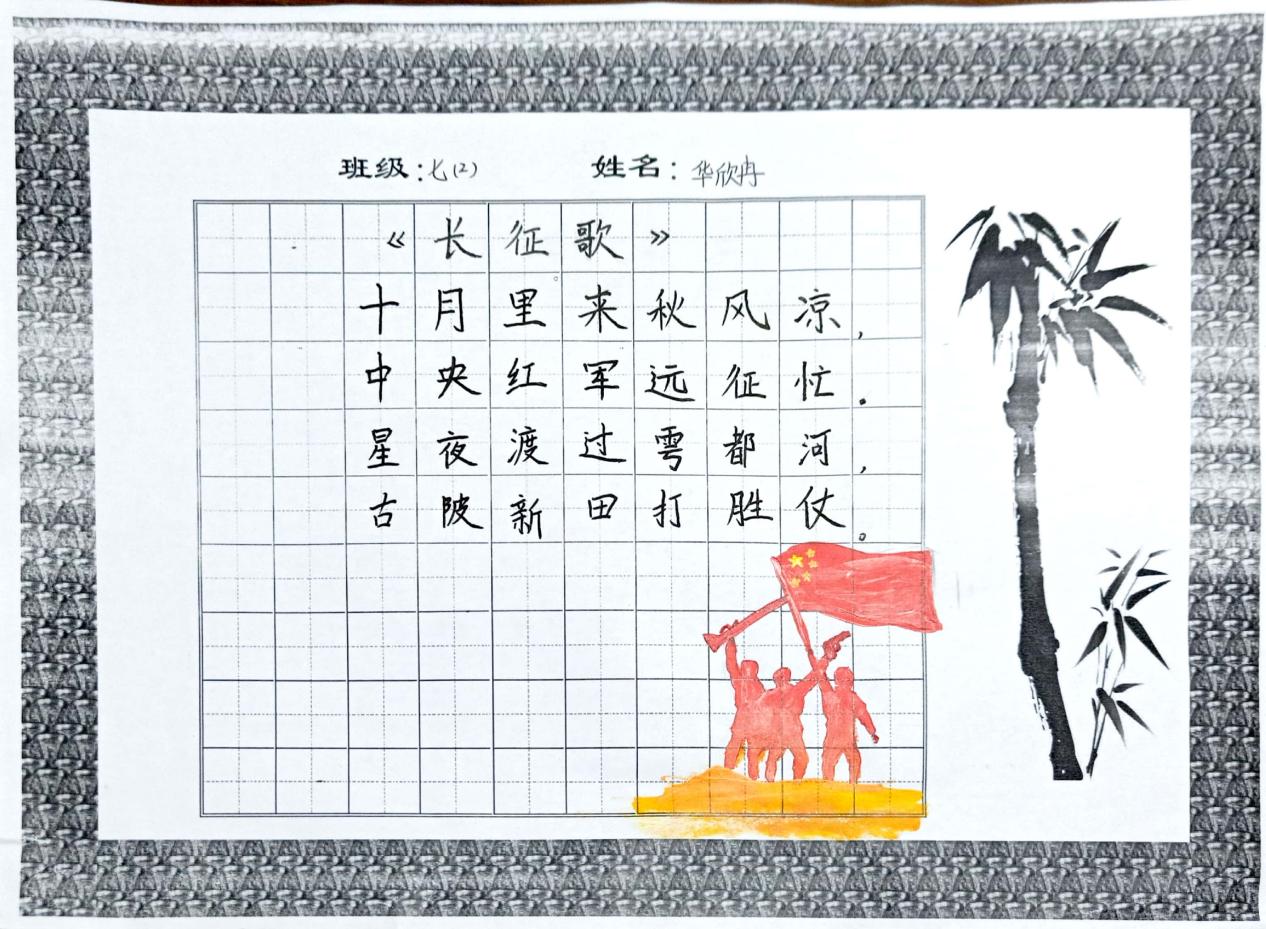 班级:七(2) 姓名:华欣冉
《长征歌》
十月里来秋风凉,
中央红军远征忙。
星夜渡过雩都河,
古陂新田打胜仗。